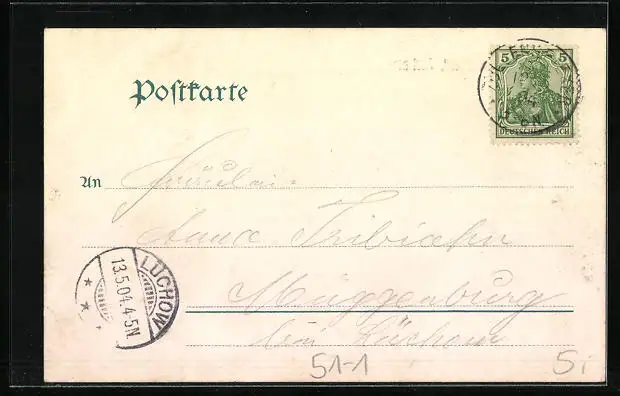 Postkarte
5 5
DEUTSCHES REICH
An Fräulein
Anna
Müggenburg
bei Lüchow
LÜCHOW
13.5.04.4-5N.
51-1
5,-